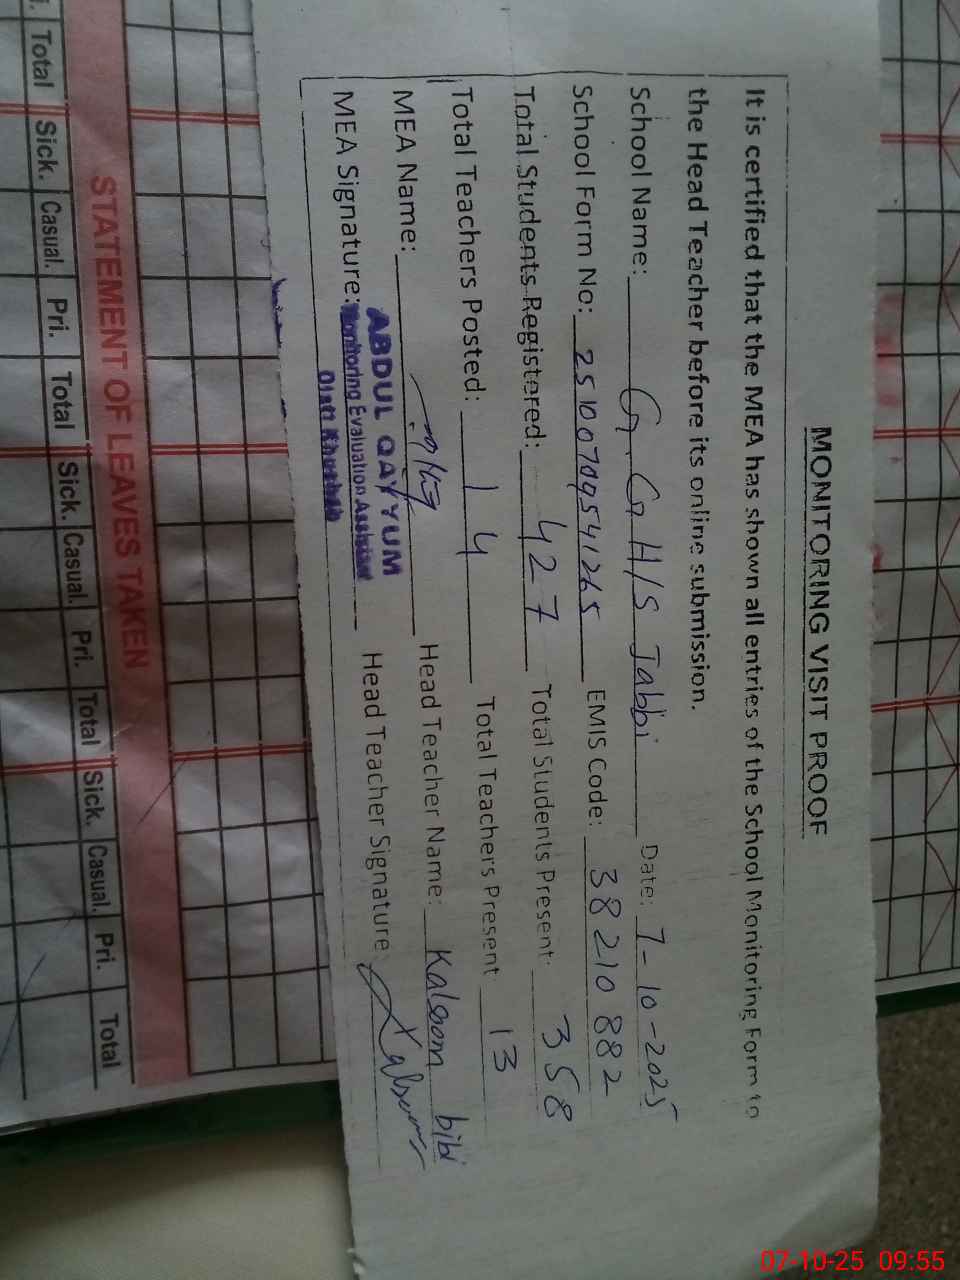 MONITORING VISIT PROOF
It is certified that the MEA has shown all entries of the School Monitoring Form to
the Head Teacher before its online submission.
School Name: G.G H/S Jabbi Date: 7-10-2025
School Form No: EMIS Code: 38210882
Total Students Registered: 427 Total Students Present: 358
Total Teachers Posted: 14 Total Teachers Present 13
MEA Name: Head Teacher Name: Kalsom bibi
ABDUL QAYYUM
MEA Signature: Monitoring Evaluation Assistant Head Teacher Signature: Kalsoom
Distt Khushab
STATEMENT OF LEAVES TAKEN
Total Sick. Casual. Pri. Total Sick. Casual. Pri. Total Sick. Casual. Pri. Total
07-10-25 09:55